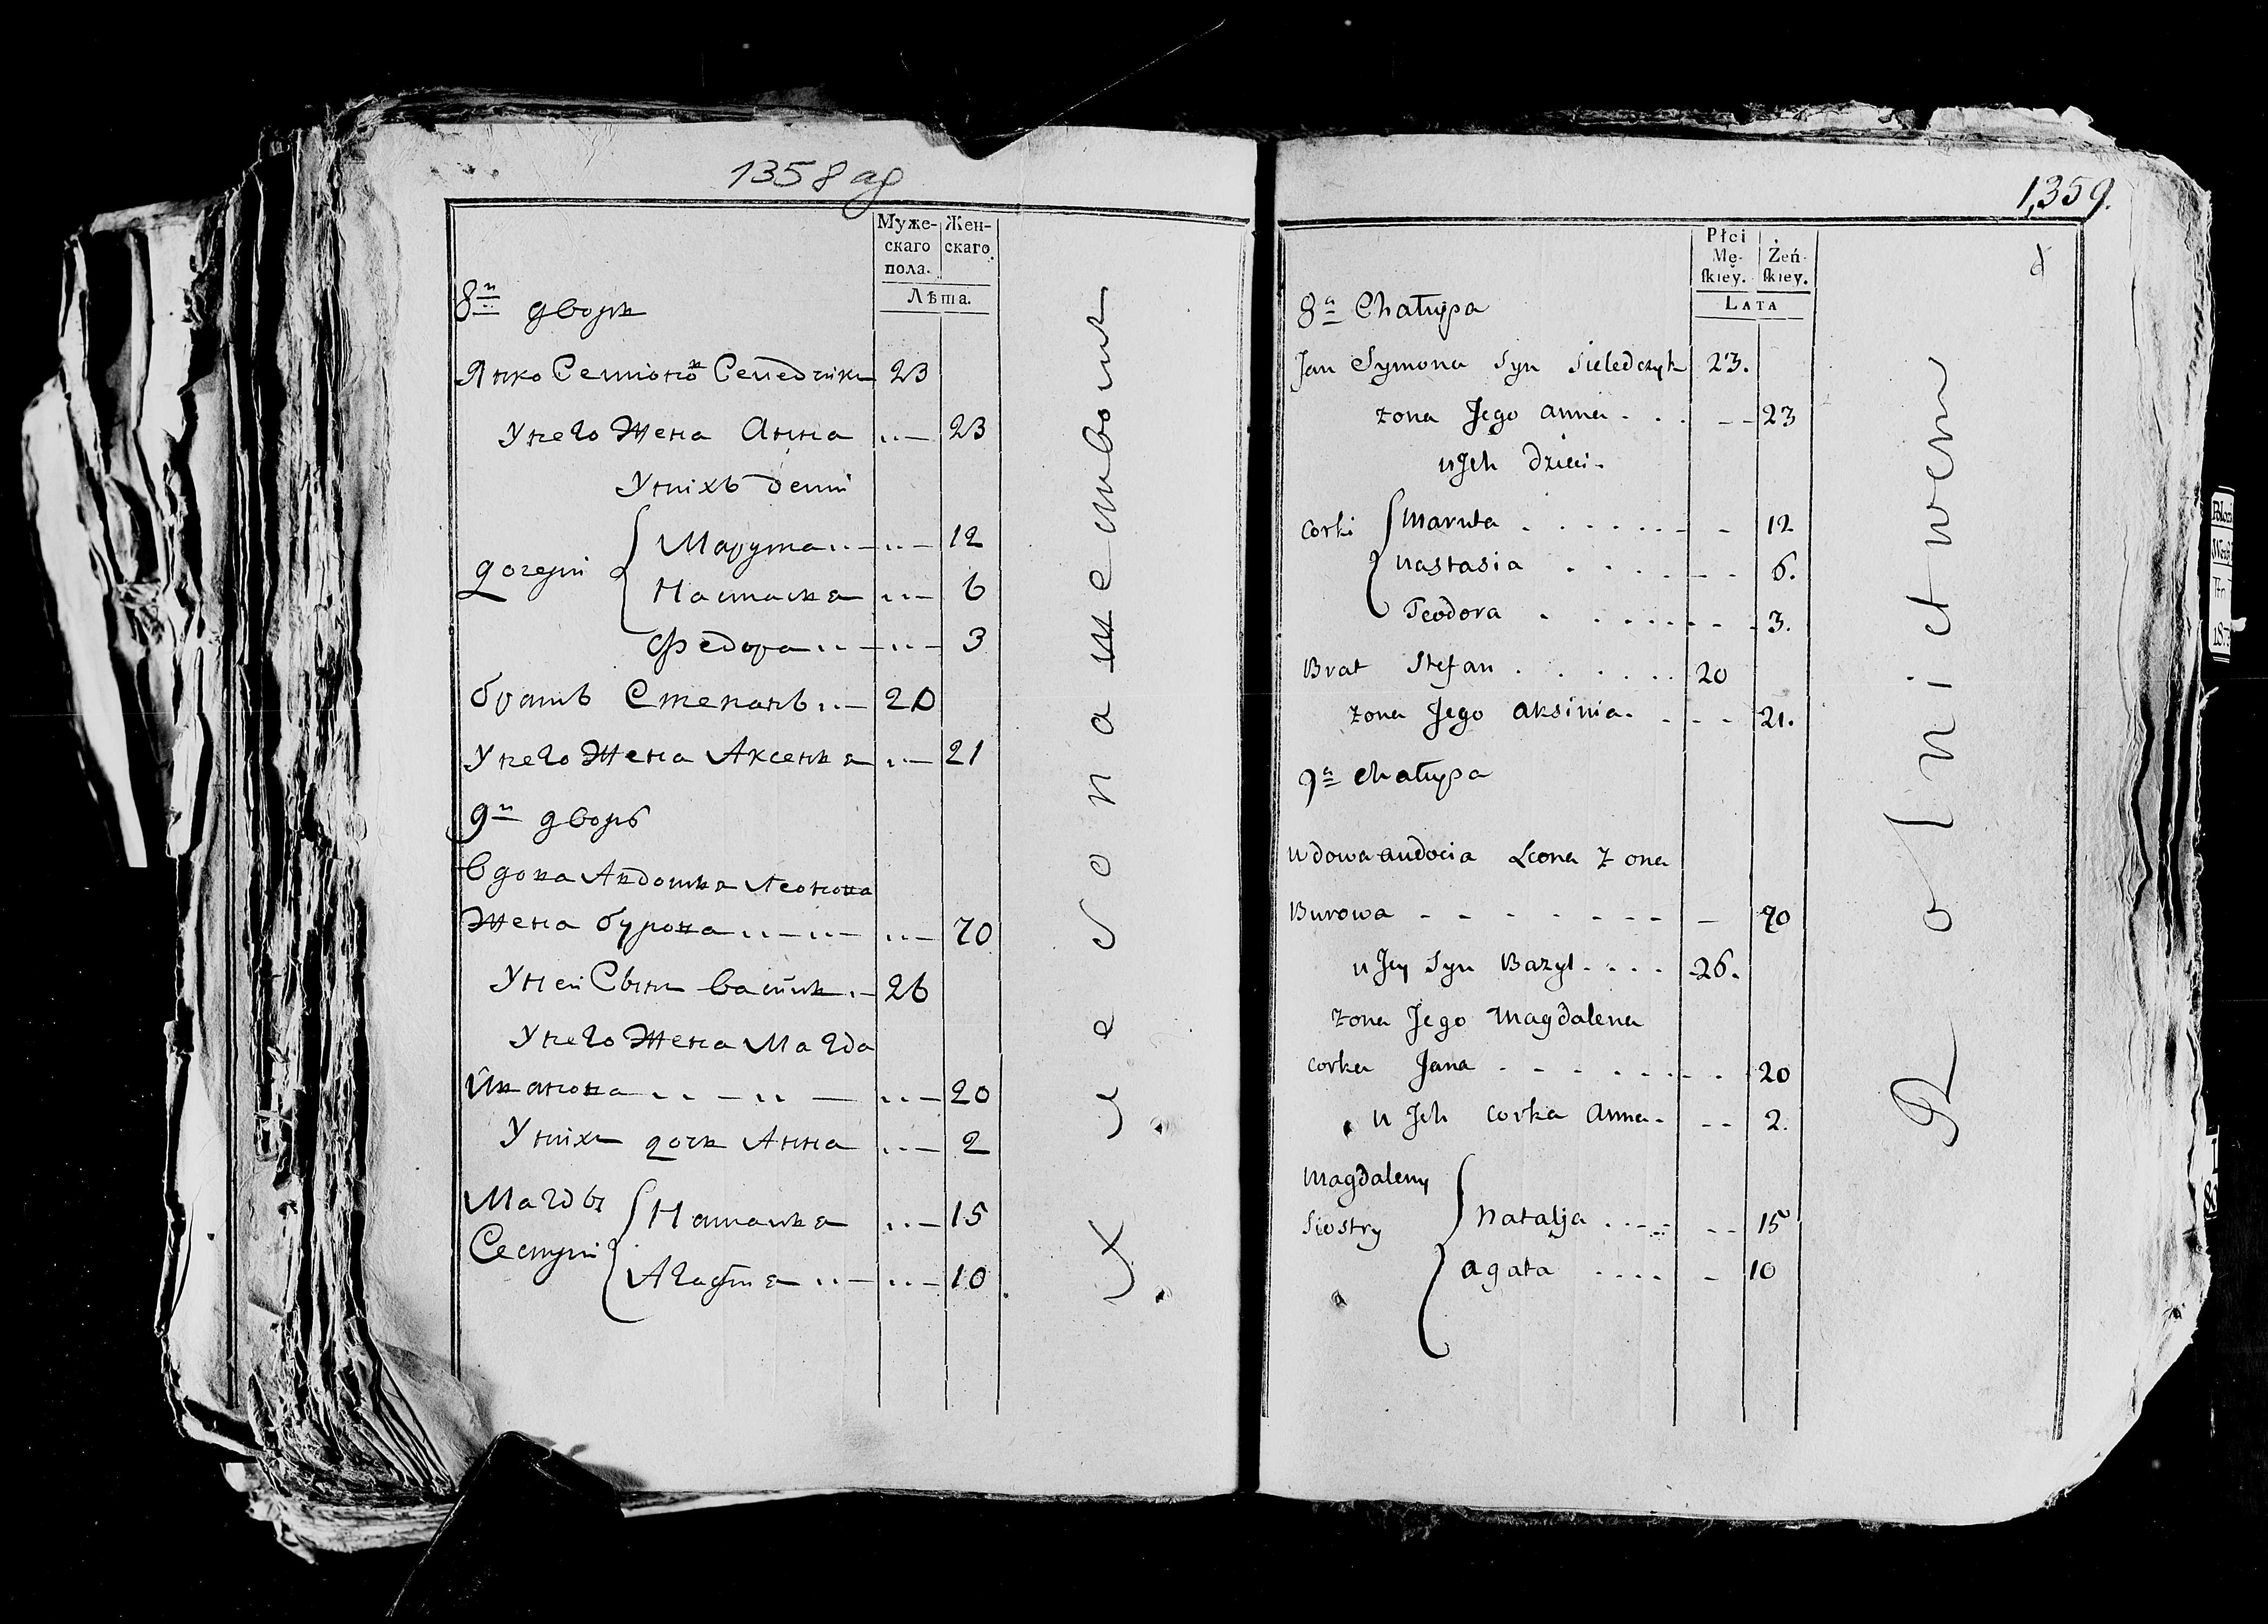 1358 ад
Муже-
скаго
пола.
Жен-
скаго.
Лѣта.
8й дворъ
Янко Семионовъ Селедчикъ 23
Унего Жена Анна 23
Унихъ дети
дочери
Марута 12
Настася 6
Федора 3
братъ Степанъ 20
Унего Жена Аксеня 21
9й дворъ
Вдова Авдотя Леонова
Жена бурова 70
Уней Сынъ василь 26
Унего Жена Магда
Иванова 20
Унихъ дочь Анна 2
Магды
Сестри
Наталя 15
Агафия 10
Хлебопашествомъ
1359.
Płci
Mę-
skiey.
Żeń-
skiey.
LATA
8a Chałupa
Jan Symona Syn Sieledczyk 23.
żona Jego anna 23
u Jch dzieci.
Corki
Maruta 12
Nastasia 6.
Teodora 3.
Brat Stefan 20
żona Jego aksinia. 21.
9a chałupa
wdowa audocia Leona żona
Burowa 70
u Jey Syn Bazyl 26.
żona Jego Magdalena
corka Jana 20
u Jch corka Anna 2.
Magdaleny
Siostry
Natalja 15
agata 10
Rolnictwem